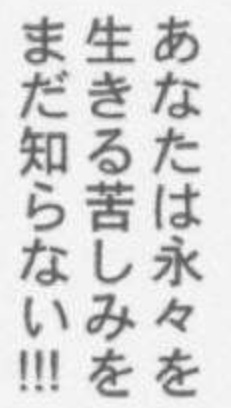 あなたは永々を
生きる苦しみを
まだ知らない!!!